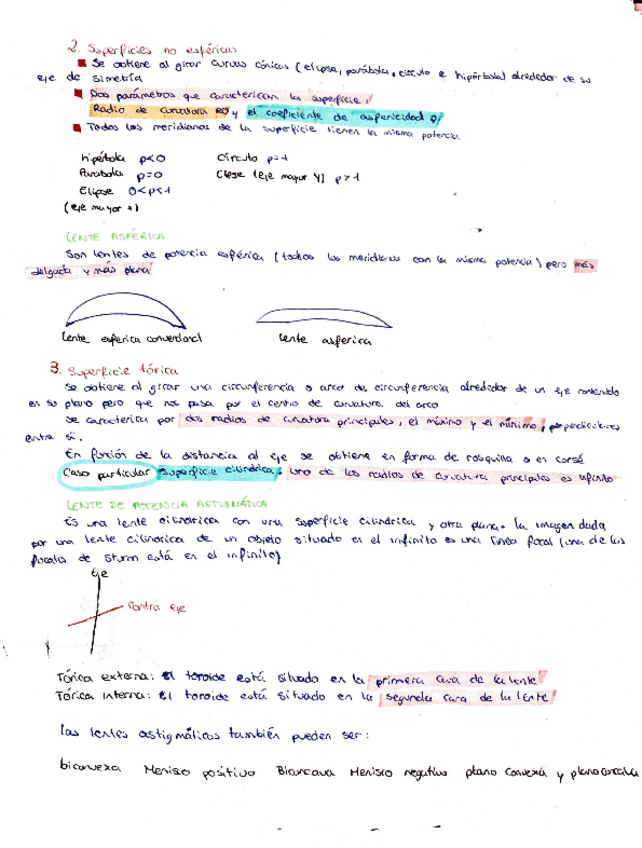 2. Superficies no esféricas
Se obtiene al girar curvas cónicas (elipse, parábola, circulo e hipérbola) alrededor de su
eje de simetría
Dos parámetros que caracterizan la superficie:
Radio de curvatura R0 y el coeficiente de asfericidad p.
Todos los meridianos de la superficie tienen la misma potencia.
hipérbola p<0 Círculo p=1
Parabola p=0 Elipse (eje mayor Y) p>1
Elipse 0<p<1
(eje mayor x)
LENTE ASFÉRICA
Son lentes de potencia esférica (todos los meridianos con la misma potencia) pero más
delgada y más plana
Lente esferica convencional Lente asferica
3. Superficie tórica
Se obtiene al girar una circunferencia o arco de circunferencia alrededor de un eje contenido
en su plano pero que no pasa por el centro de curvatura del arco
Se caracteriza por dos radios de curvatura principales, el máximo y el mínimo, perpendiculares
entre sí.
En función de la distancia al eje se obtiene en forma de rosquilla o en corsé
Caso particular Superficie cilindrica: Uno de los radios de curvatura principales es infinito
LENTE DE POTENCIA ASTIGMÁTICA
Es una lente cilindrica con una superficie cilindrica y otra plana. La imagen dada
por una lente cilindrica de un objeto situado en el infinito es una linea focal (una de las
focales de Sturm está en el infinito)
Eje
Contra eje
Tórica externa: El toroide está situado en la primera cara de la lente
Tórica Interna: El toroide está situado en la segunda cara de la lente
Las lentes astigmáticas también pueden ser:
biconvexa Menisco positivo Biconcava Menisco negativo plano Convexa y plano concava